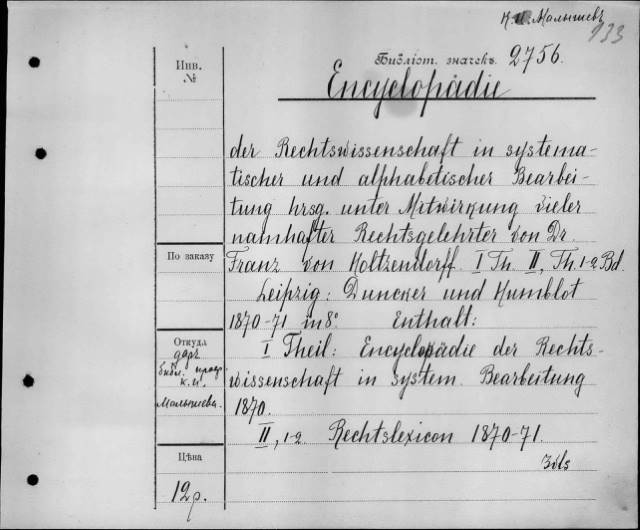 К. И. Малышевъ
133
Инв.
№
Библіот. значекъ. 2756.
Encyclopädie
der Rechtswissenschaft in systema-
tischer und alphabetischer Bearbei-
tung hrsg. unter Mitwirkung vieler
namhafter Rechtsgelehrter von Dr.
По заказу
Franz von Holtzendorff. I Th. II, Th. 1-2 Bd.
Leipzig: Duncker und Humblot
1870-71 in 8° Enthalt:
Откуда
даръ
библ. проф.
К. И.
Малышева.
I Theil: Encyclopädie der Rechts-
wissenschaft in system. Bearbeitung
1870.
II, 1-2. Rechtslexicon 1870-71.
Цѣна
12 р.